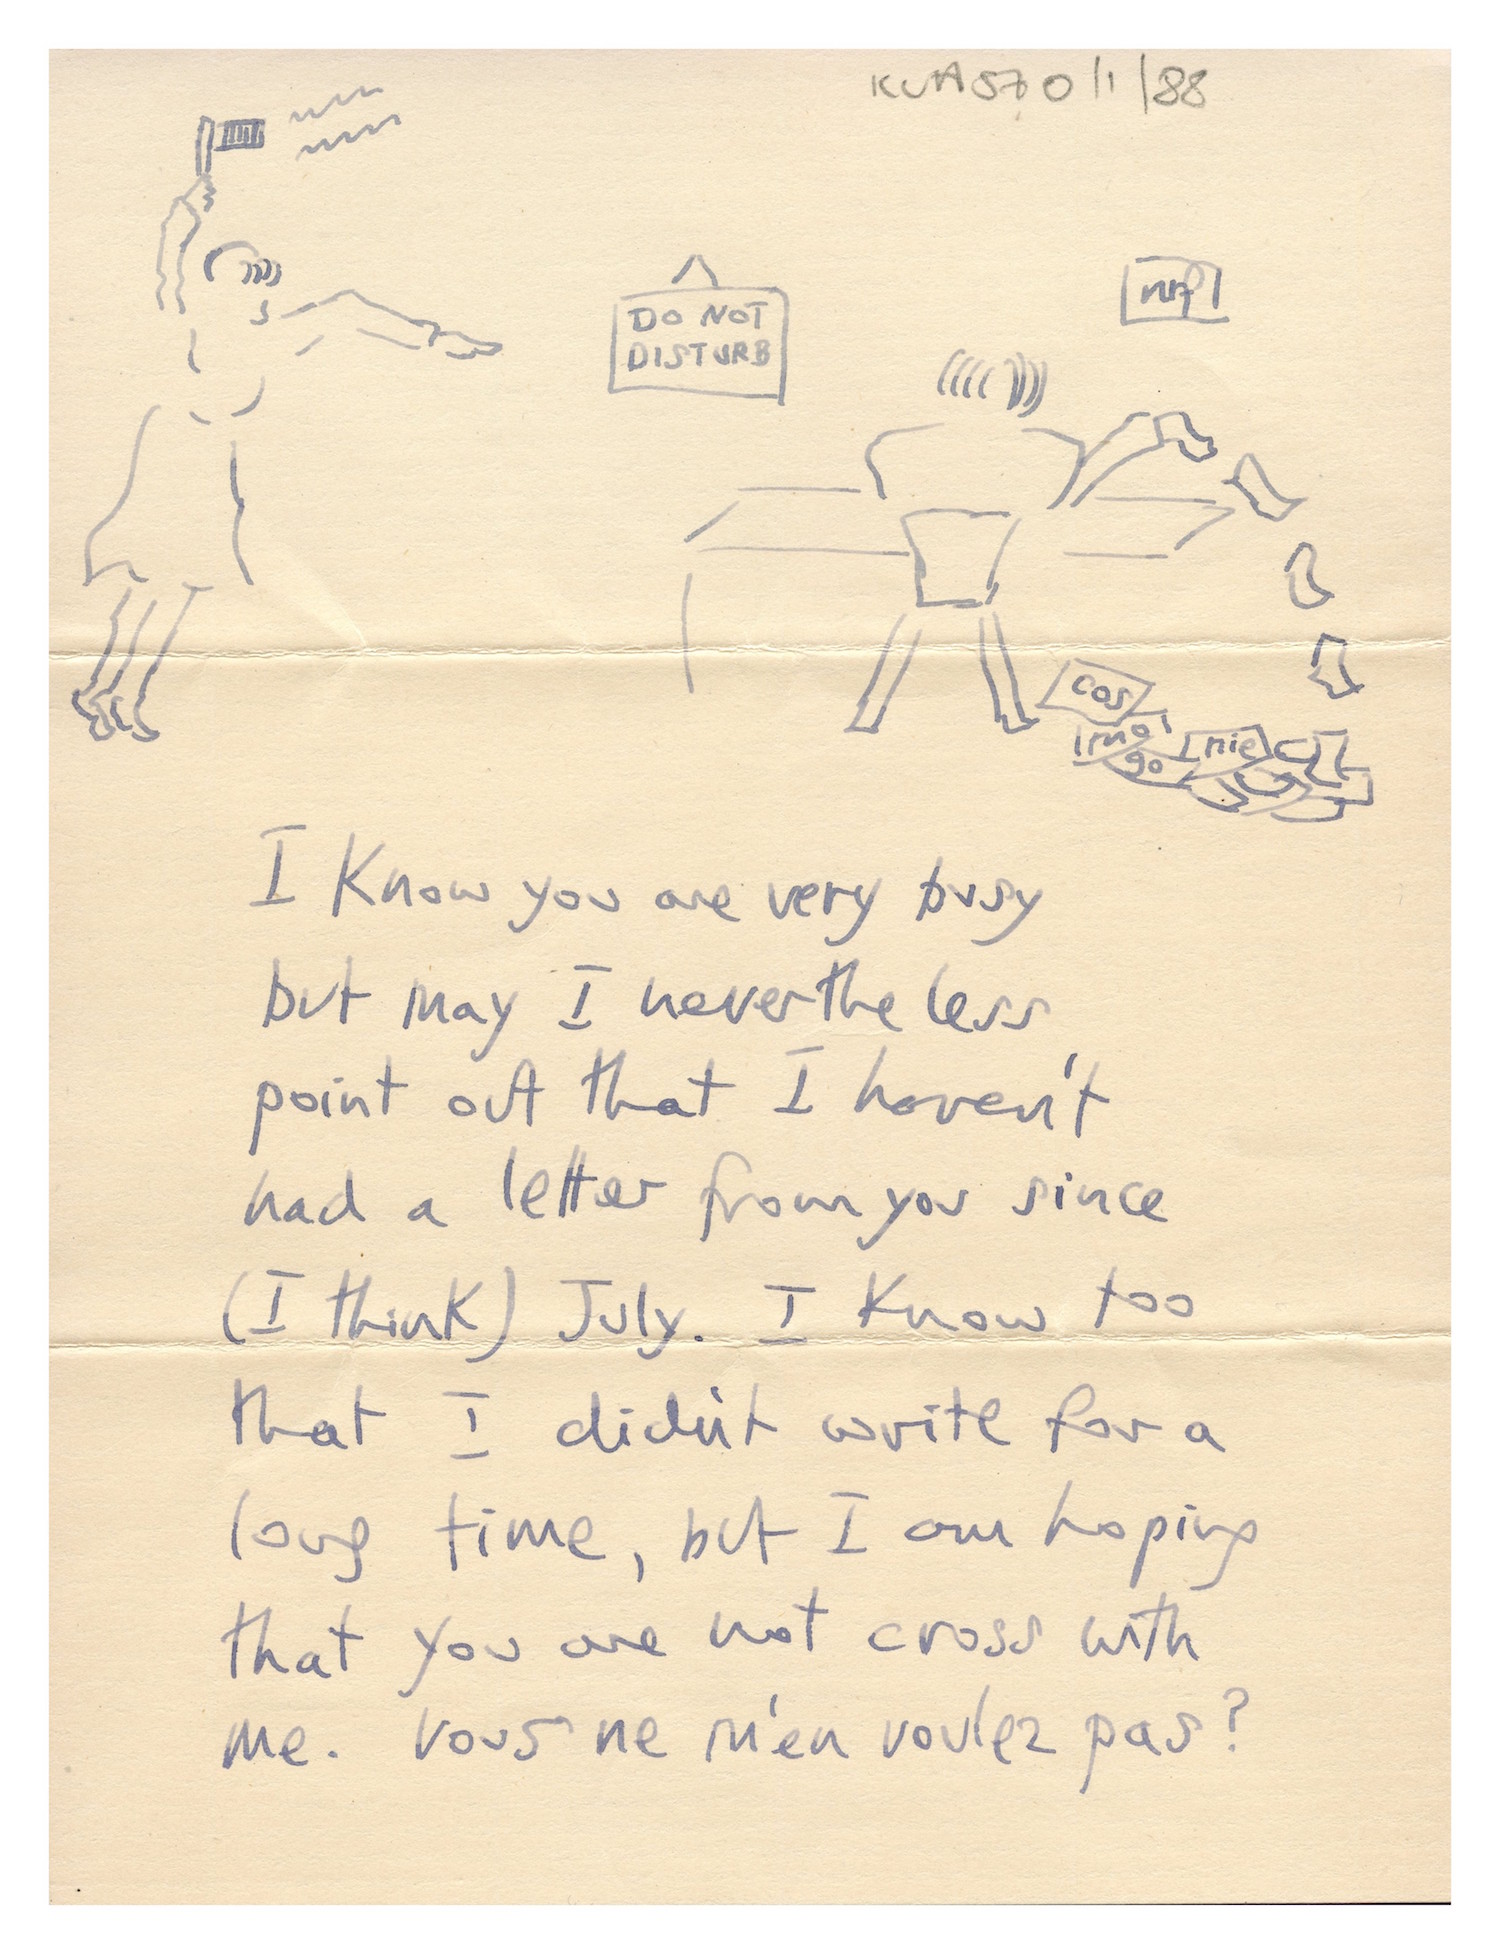 KUA570/1/88
DO NOT
DISTURB
cos
mol
nie
go
I know you are very busy
but may I nevertheless
point out that I haven't
had a letter from you since
(I think) July. I know too
that I didn't write for a
long time, but I am hoping
that you are not cross with
me. Vous ne m'en voulez pas?